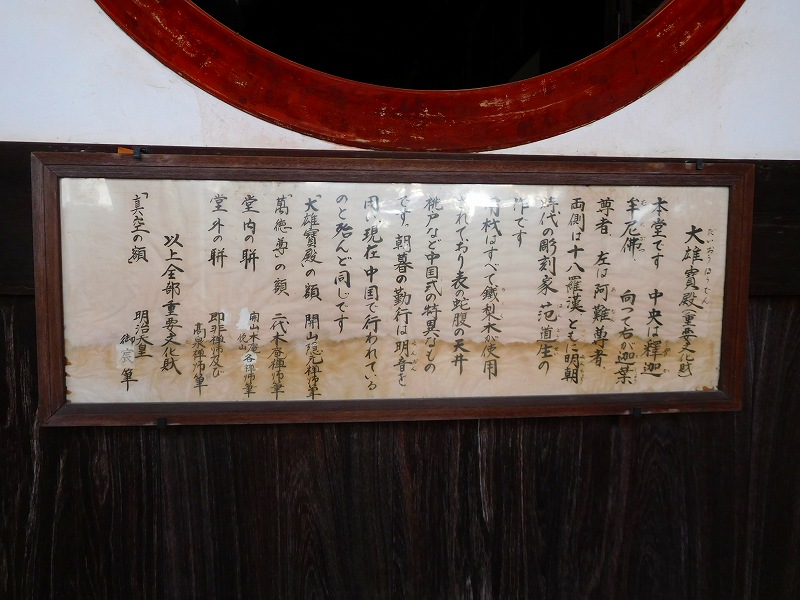 大雄寶殿(重要文化財)
たいおうほうでん
本堂です 中央は釋迦
牟尼佛 向つて右が迦葉
尊者 左は阿難尊者
両側は十八羅漢ともに明朝
時代の彫刻家 范道生の
作です
用材はすべて鐵梨木が使用
されており表の蛇腹の天井
桃戸など中国式の特異なもの
です 朝暮の勤行は明音を
用い現在中国で行われている
のと殆んど同じです
「大雄寶殿」の額 開山隠元禅師筆
「萬徳尊」の額 二代木庵禅師筆
堂内の聯 開山木庵
各禅師筆
堂外の聯 即非禅師及び
高泉禅師筆
以上全部重要文化財
「真空の額」 明治天皇
御宸筆